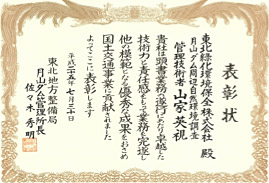 表彰状
東北緑化環境保全株式会社 殿
月山ダム周辺自然環境調査
管理技術者 山家英視
貴社は頭書業務の遂行にあたり卓越した
技術力と責任感をもって業務を完遂し
他の模範となる優秀な成果をおさめ
国土交通事業に貢献されました
よってここに表彰します
平成二十五年七月三十日
東北地方整備局
月山ダム管理所長
佐々木秀明